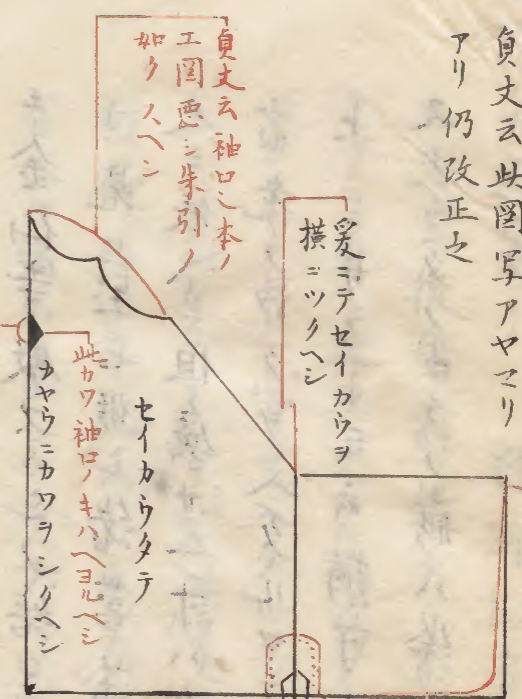 貞丈云此圖写アヤマリ
アリ仍改正之
爰ニテセイカウヲ
横ニツクヘシ
貞丈云袖口ノ本ノ
エ圖悪シ朱引ノ
如クスヘシ
セイカウタテ
此カワ袖口ノキハヘヨルヘシ
カヤウニカワヲシクヘシ